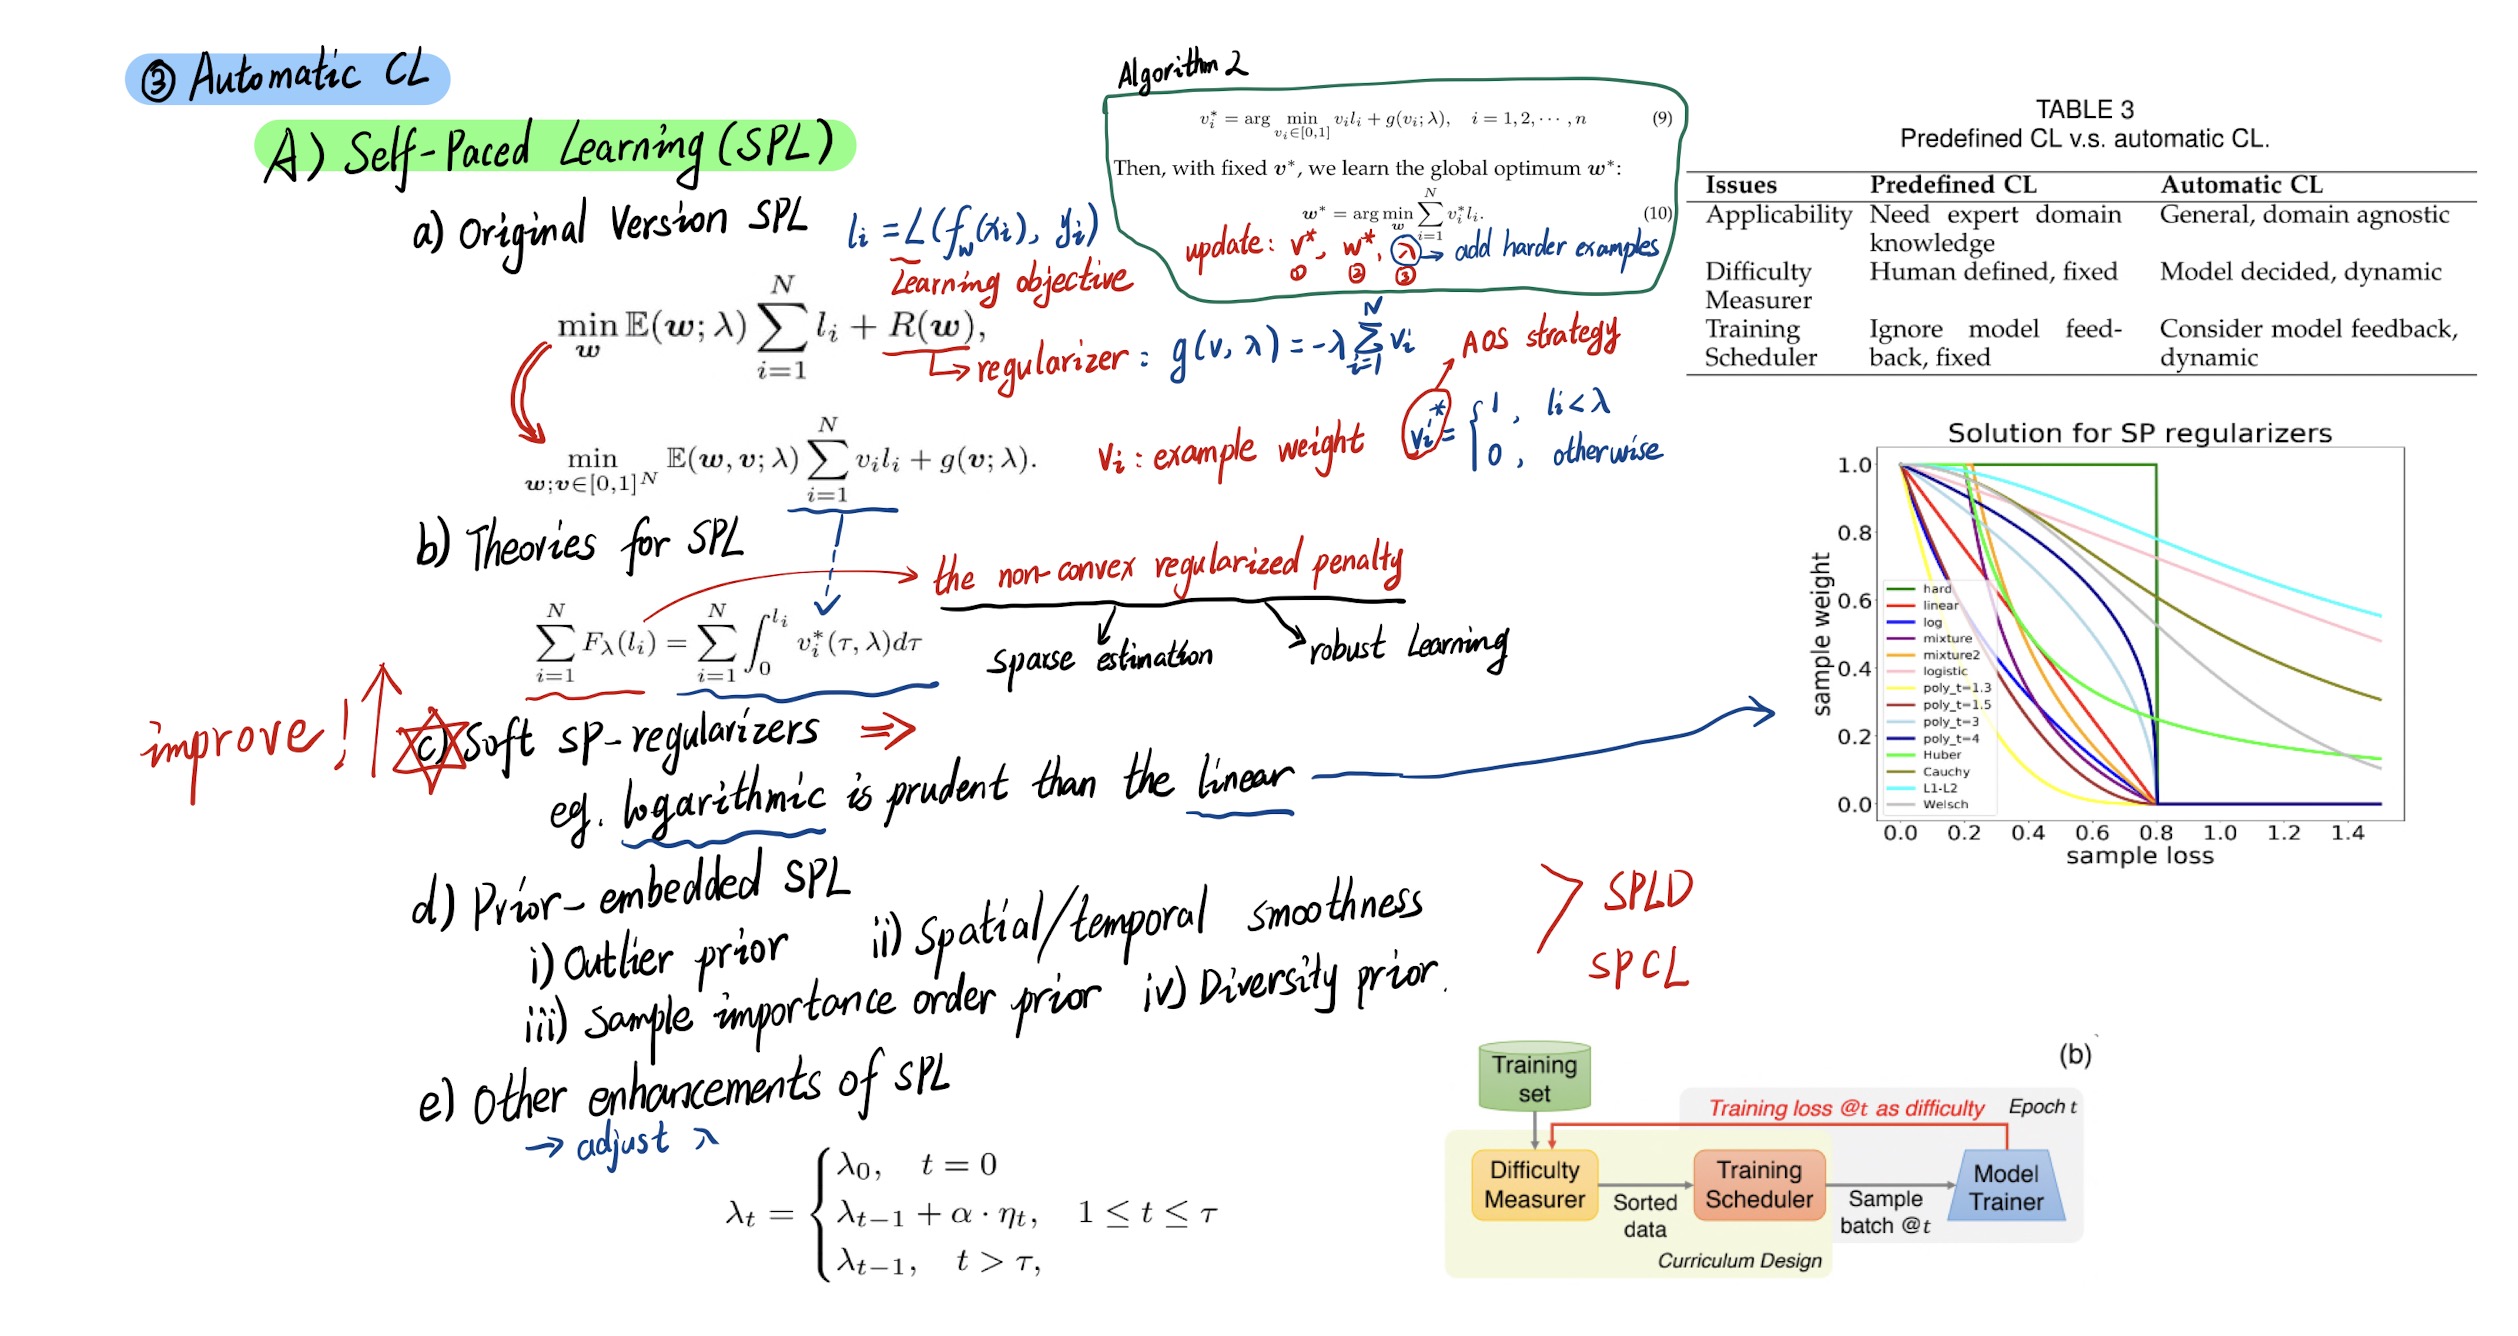 ③ Automatic CL
A) Self-Paced Learning (SPL)
a) Original Version SPL
l_i = L(f_w(x_i), y_i)
Learning objective
min_w 𝔼(w; λ) ∑_{i=1}^{N} l_i + R(w),
regularizer : g(v, λ) = -λ ∑_{i=1}^{N} v_i
min_{w;v∈[0,1]^N} 𝔼(w, v; λ) ∑_{i=1}^{N} v_i l_i + g(v; λ).
v_i : example weight
v_i^* = { 1, l_i < λ
0, otherwise
AOS strategy
Algorithm 2
v_i^* = arg min_{v_i∈[0,1]} v_i l_i + g(v_i; λ), i = 1, 2, ⋯, n (9)
Then, with fixed v^*, we learn the global optimum w^*:
w^* = arg min_w ∑_{i=1}^{N} v_i^* l_i. (10)
update: v^*, w^*, λ → add harder examples
① ② ③
b) Theories for SPL
the non-convex regularized penalty
sparse estimation
robust Learning
∑_{i=1}^{N} F_λ(l_i) = ∑_{i=1}^{N} ∫_0^{l_i} v_i^*(τ, λ)dτ
improve!
c) Soft SP-regularizers ⇒
eg. logarithmic is prudent than the linear
d) Prior-embedded SPL
i) Outlier prior ii) Spatial/temporal smoothness
iii) Sample importance order prior iv) Diversity prior.
> SPLD
SPCL
e) Other enhancements of SPL
→ adjust λ
λ_t = { λ_0, t = 0
λ_{t−1} + α · η_t, 1 ≤ t ≤ τ
λ_{t−1}, t > τ,
TABLE 3
Predefined CL v.s. automatic CL.
Issues Predefined CL Automatic CL
Applicability Need expert domain General, domain agnostic
knowledge
Difficulty Human defined, fixed Model decided, dynamic
Measurer
Training Ignore model feed- Consider model feedback,
Scheduler back, fixed dynamic
Solution for SP regularizers
sample weight
1.0
0.8
0.6
0.4
0.2
0.0
hard
linear
log
mixture
mixture2
logistic
poly_t=1.3
poly_t=1.5
poly_t=3
poly_t=4
Huber
Cauchy
L1-L2
Welsch
0.0 0.2 0.4 0.6 0.8 1.0 1.2 1.4
sample loss
(b)
Training
set
Training loss @t as difficulty
Epoch t
Difficulty
Measurer
Sorted
data
Training
Scheduler
Sample
batch @t
Model
Trainer
Curriculum Design